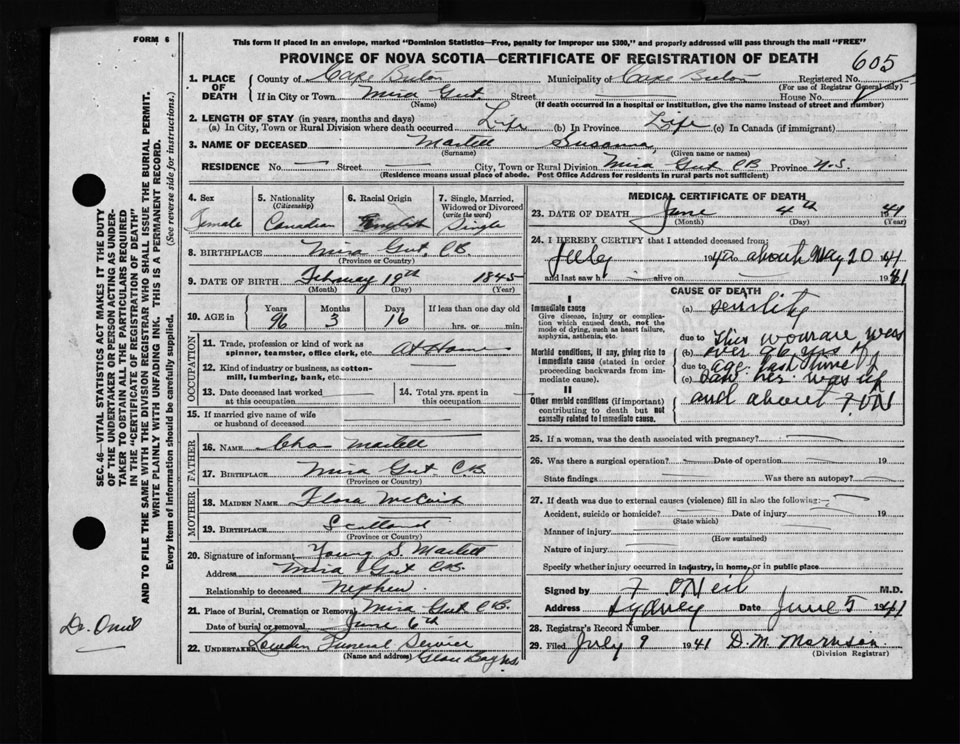 FORM 6
This form if placed in an envelope, marked "Dominion Statistics—Free, penalty for improper use $300," and properly addressed will pass through the mail "FREE"
PROVINCE OF NOVA SCOTIA—CERTIFICATE OF REGISTRATION OF DEATH 605
1. PLACE OF DEATH County of Cape Breton Municipality of Cape Breton Registered No.
(For use of Registrar General only)
If in City or Town Mira Gut. Street House No.
(Name) (If death occurred in a hospital or institution, give the name instead of street and number)
2. LENGTH OF STAY (in years, months and days)
(a) In City, Town or Rural Division where death occurred Life (b) In Province Life (c) In Canada (if immigrant)
3. NAME OF DECEASED Martell Susanna
(Surname) (Given name or names)
RESIDENCE No. — Street City, Town or Rural Division Mira Gut CB Province N.S.
(Residence means usual place of abode. Post Office Address for residents in rural parts not sufficient)
4. Sex Female
5. Nationality (Citizenship) Canadian
6. Racial Origin English
7. Single, Married, Widowed or Divorced (write the word) Single
8. BIRTHPLACE Mira Gut, CB.
(Province or Country)
9. DATE OF BIRTH February 19th 1845
(Month) (Day) (Year)
10. AGE in Years 96 Months 3 Days 16 If less than one day old
hrs. or min.
OCCUPATION
11. Trade, profession or kind of work as spinner, teamster, office clerk, etc. At Home
12. Kind of industry or business, as cotton-mill, lumbering, bank, etc.
13. Date deceased last worked at this occupation
14. Total yrs. spent in this occupation
15. If married give name of wife or husband of deceased
FATHER
16. NAME Chas Martell
17. BIRTHPLACE Mira Gut. C.B.
(Province or Country)
MOTHER
18. MAIDEN NAME Flora
19. BIRTHPLACE Scotland
(Province or Country)
20. Signature of informant Young S. Martell
Address Mira Gut C.B.
Relationship to deceased Nephew
21. Place of Burial, Cremation or Removal Mira Gut C.B.
Date of burial or removal June 6th
22. UNDERTAKER Funeral Service
(Name and address) Glace Bay N.S.
MEDICAL CERTIFICATE OF DEATH
23. DATE OF DEATH June 4th 1941
(Month) (Day) (Year)
24. I HEREBY CERTIFY that I attended deceased from:
July 1940 about May 20 1941
and last saw h alive on 19
CAUSE OF DEATH
I
Immediate cause
Give disease, injury or complication which caused death, not the mode of dying, such as heart failure, asphyxia, asthenia, etc.
(a) Senility
Morbid conditions, if any, giving rise to immediate cause (stated in order proceeding backwards from immediate cause).
due to This woman was
(b) over 96 yrs of
due to age. Last time I
(c) saw her was up
II
Other morbid conditions (if important) contributing to death but not causally related to immediate cause.
and about F.ON
25. If a woman, was the death associated with pregnancy?
26. Was there a surgical operation? Date of operation 19
State findings Was there an autopsy?
27. If death was due to external causes (violence) fill in also the following:
Accident, suicide or homicide? Date of injury 19
(State which)
Manner of injury
(How sustained)
Nature of injury
Specify whether injury occurred in industry, in home, or in public place
Signed by F O'Neil M.D.
Address Sydney Date June 5 1941
28. Registrar's Record Number
29. Filed July 9 1941 D. M. Morrison
(Division Registrar)
SEC. 46—VITAL STATISTICS ACT MAKES IT THE DUTY
OF THE UNDERTAKER OR PERSON ACTING AS UNDER-
TAKER TO OBTAIN ALL THE PARTICULARS REQUIRED
IN THE "CERTIFICATE OF REGISTRATION OF DEATH"
AND TO FILE THE SAME WITH THE DIVISION REGISTRAR WHO SHALL ISSUE THE BURIAL PERMIT.
WRITE PLAINLY WITH UNFADING INK. THIS IS A PERMANENT RECORD.
Every item of Information should be carefully supplied. (See reverse side for instructions.)
Dr. Oneil